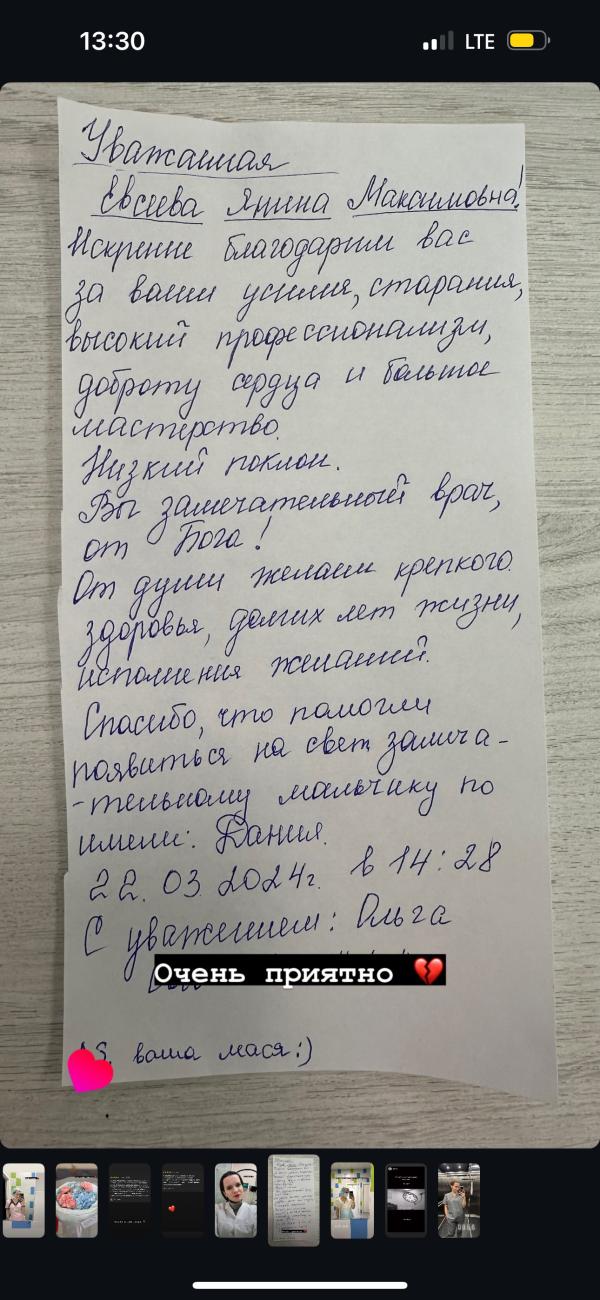 13:30
LTE
Уважаемая
Евсиева Янина Максимовна!
Искренне благодарим вас
за ваши усилия, старания,
высокий профессионализм,
доброту сердца и большое
мастерство.
Низкий поклон.
Вы замечательный врач,
от Бога!
От души желаем крепкого
здоровья, долгих лет жизни,
исполнения желаний.
Спасибо, что помогли
появиться на свет замеча-
-тельному мальчику по
имени: Данил.
22. 03 2024г. в 14:28
С уважением: Ольга
Очень приятно 💔
ваша мася:)